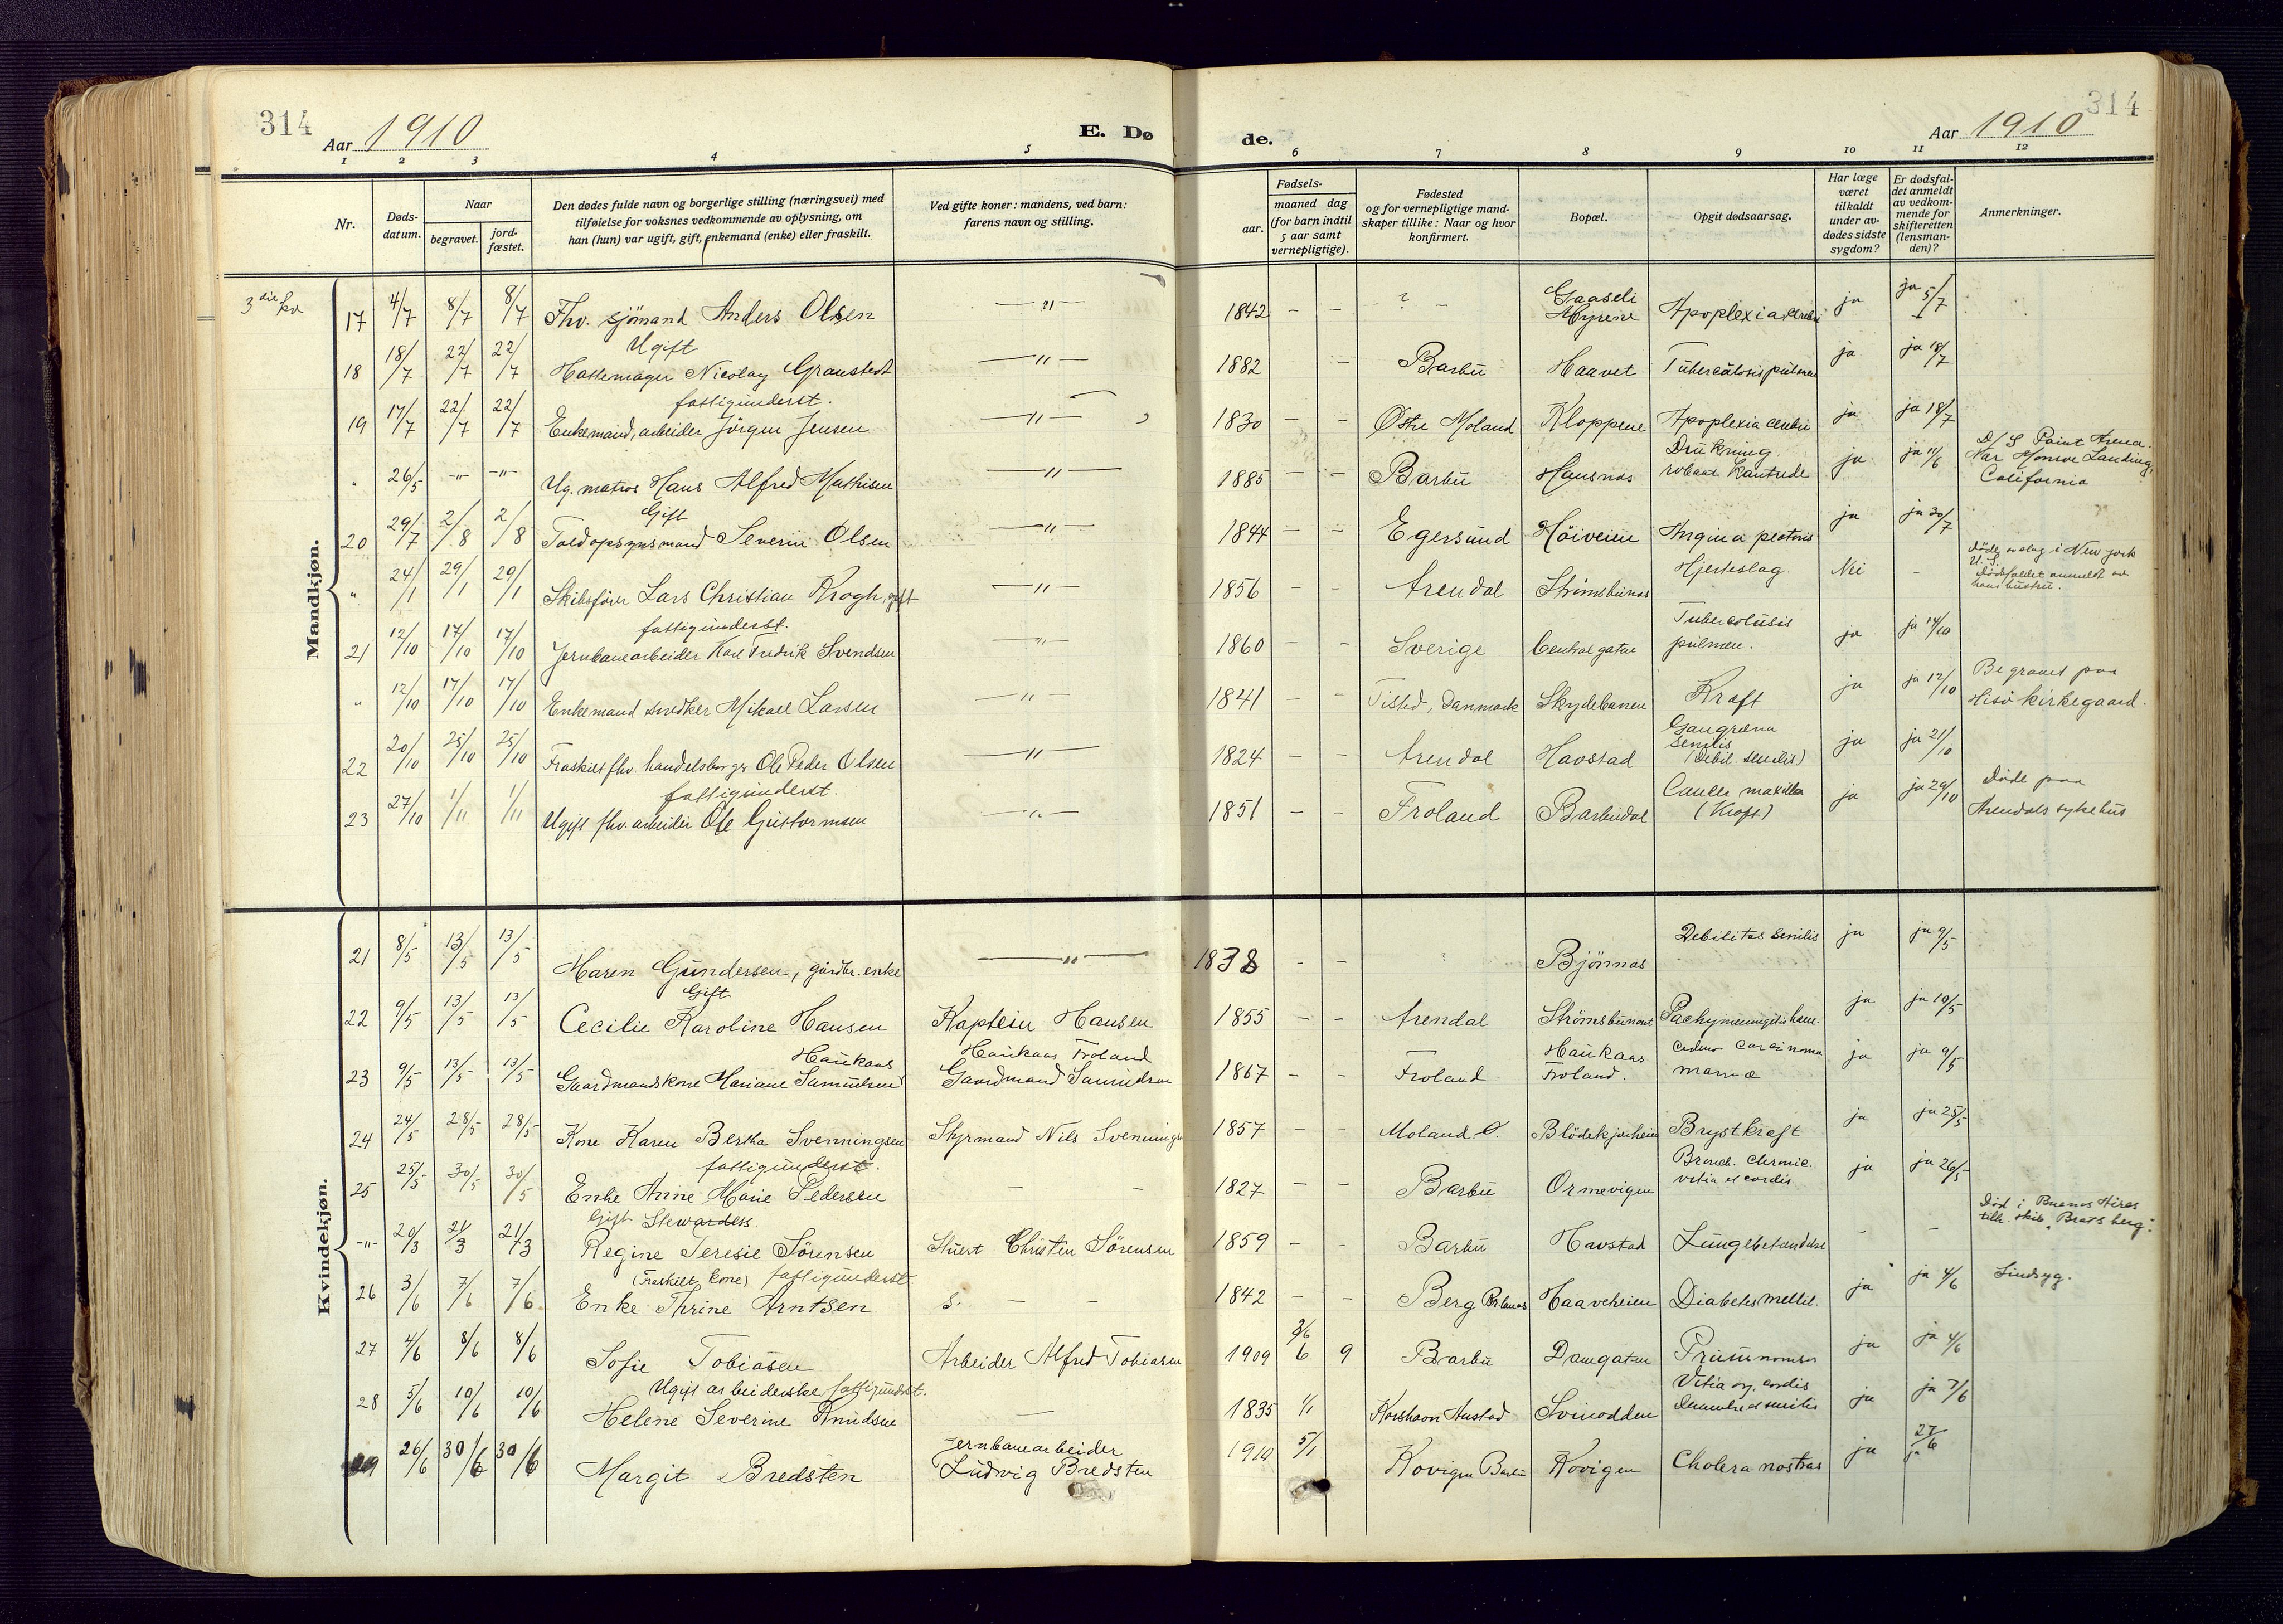 314
Aar 1910
E. Dø
de.
Aar 1910
314
1 2 3 4 5 6 7 8 9 10 11 12
Nr.
Døds-
datum.
Naar
begravet.
jord-
fæstet.
Den dødes fulde navn og borgerlige stilling (næringsvei) med
tilføielse for voksnes vedkommende av oplysning, om
han (hun) var ugift, gift, enkemand (enke) eller fraskilt.
Ved gifte koner: mandens, ved barn:
farens navn og stilling.
Fødsels-
aar.
maaned dag
(for barn indtil
5 aar samt
vernepligtige).
Fødested
og for vernepligtige mand-
skaper tillike: Naar og hvor
konfirmert.
Bopæl.
Opgit dødsaarsag.
Har læge
været
tilkaldt
under av-
dødes sidste
sygdom?
Er dødsfal-
det anmeldt
av vedkom-
mende for
skifteretten
(lensman-
den)?
Anmerkninger.
3die kv
Mandkjøn.
17 4/7 8/7 8/7 Fhv. sjömand Anders Olsen —"— 1842 – – ? – Gaaseli Myrene Apoplexia cerebri ja ja 5/7
Ugift
18 18/7 22/7 22/7 Hattemager Nicolay Granstedt —"— 1882 – Barbu Haavet Tuberculosis pulmon ja ja 18/7
fattigunderst.
19 17/7 22/7 22/7 Enkemand, arbeider Jörgen Jensen —"— 1830 – – Østre Moland Kloppene Apoplexia cerebri ja ja 18/7
" 26/5 –"– –"– Ug. matros Hans Alfred Mathisen —"— 1885 – – Barbu Hausnæs Drukning ja ja 11/6
D/S Point Arena
Nær Landing,
California
Gift
20 29/7 2/8 2/8 Toldopsynsmand Severin Olsen —"— 1844 – – Egersund Höiveien Angina pectoris ja ja 30/7
" 24/1 29/1 29/1 Skibsförer Lars Christian Krogh, gift —"— 1856 – – Arendal Strömsbunæs Hjerteslag. Nei –
Döde av slag i New york
U.S.
Dödsfaldet anmeldt av
hans hustru.
fattigunderst.
21 12/10 17/10 17/10 Jernbanearbeider Karl Fredrik Svendsen —"— 1860 – – Sverige Centralgaten Tuberculosis pulmon. ja ja 14/10
" 12/10 17/10 17/10 Enkemand snedker Mikael Larsen —"— 1841 – – Tisted, Danmark Skydebanen Kræft ja ja 12/10
Begravet paa
Hisö kirkegaard.
22 20/10 25/10 25/10 Fraskilt fhv. handelsborger Ole Peder Olsen —"— 1824 – – Arendal Havstad Gangræna senilis (Debil. senilis) ja ja 21/10
fattigunderst.
23 27/10 1/11 1/11 Ugift fhv. arbeider Ole Guttormsen —"— 1851 – – Froland Barbudal Cancer maxilla (Kræft) ja ja 29/10
Döde paa
Arendals sykehus
Kvindekjøn.
21 8/5 13/5 13/5 Maren Gundersen, gårdbr. enke —"— 1838 – – Bjönnæs Debilitas senilis ja ja 9/5
Gift
22 9/5 13/5 13/5 Cecilie Karoline Hansen Kaptein Hansen 1855 – – Arendal Strömsbunæs Pachymeningitis hæm. ja ja 10/5
Haukaas Haukaas Froland
23 9/5 13/5 13/5 Gaardmandskone Mariane Samuelsen Gaardmand Samuelsen 1867 – – Froland Haukaas Froland. Carcinoma mamæ ja ja 9/5
24 24/5 28/5 28/5 Kone Karen Bertha Svenningsen Styrmand Nils Svennings 1857 – – Moland Ö. Blödekjærheien Brystkræft ja ja 25/5
fattigunderst.
25 25/5 30/5 30/5 Enke Anne Marie Pedersen – – 1827 – – Barbu Ormevigen Bronch. chronic. vitia cordis ja ja 26/5
Gift Stewardess
–"– 20/3 21/3 21/3 Regine Teresie Sörensen Stuert Christen Sörensen 1859 – – Barbu Havstad Lungebetændelse – –
Död i Buenos Aires
tilh. skib „Bratsberg".
(Fraskilt kone) fattigunderst.
26 3/6 7/6 7/6 Enke Thrine Arntsen s. – – 1842 – – Berg Haaveheien Diabetes mellit. ja ja 4/6 Sindsyg.
27 4/6 8/6 8/6 Sofie Tobiasen Arbeider Alfred Tobiasen 1909 6 9 Barbu Damgaten ja ja 4/6
Ugift arbeiderske fattigundst.
28 5/6 10/6 10/6 Helene Severine Knudsen — 1835 1/1 Svinodden Vitia org. cordis ja ja 7/6
29 26/6 30/6 30/6 Margit Bredsten Jernbanearbeider Ludvig Bredsten 1910 5/1 Kovigen Barbu Kovigen Cholera nostras ja ja 27/6